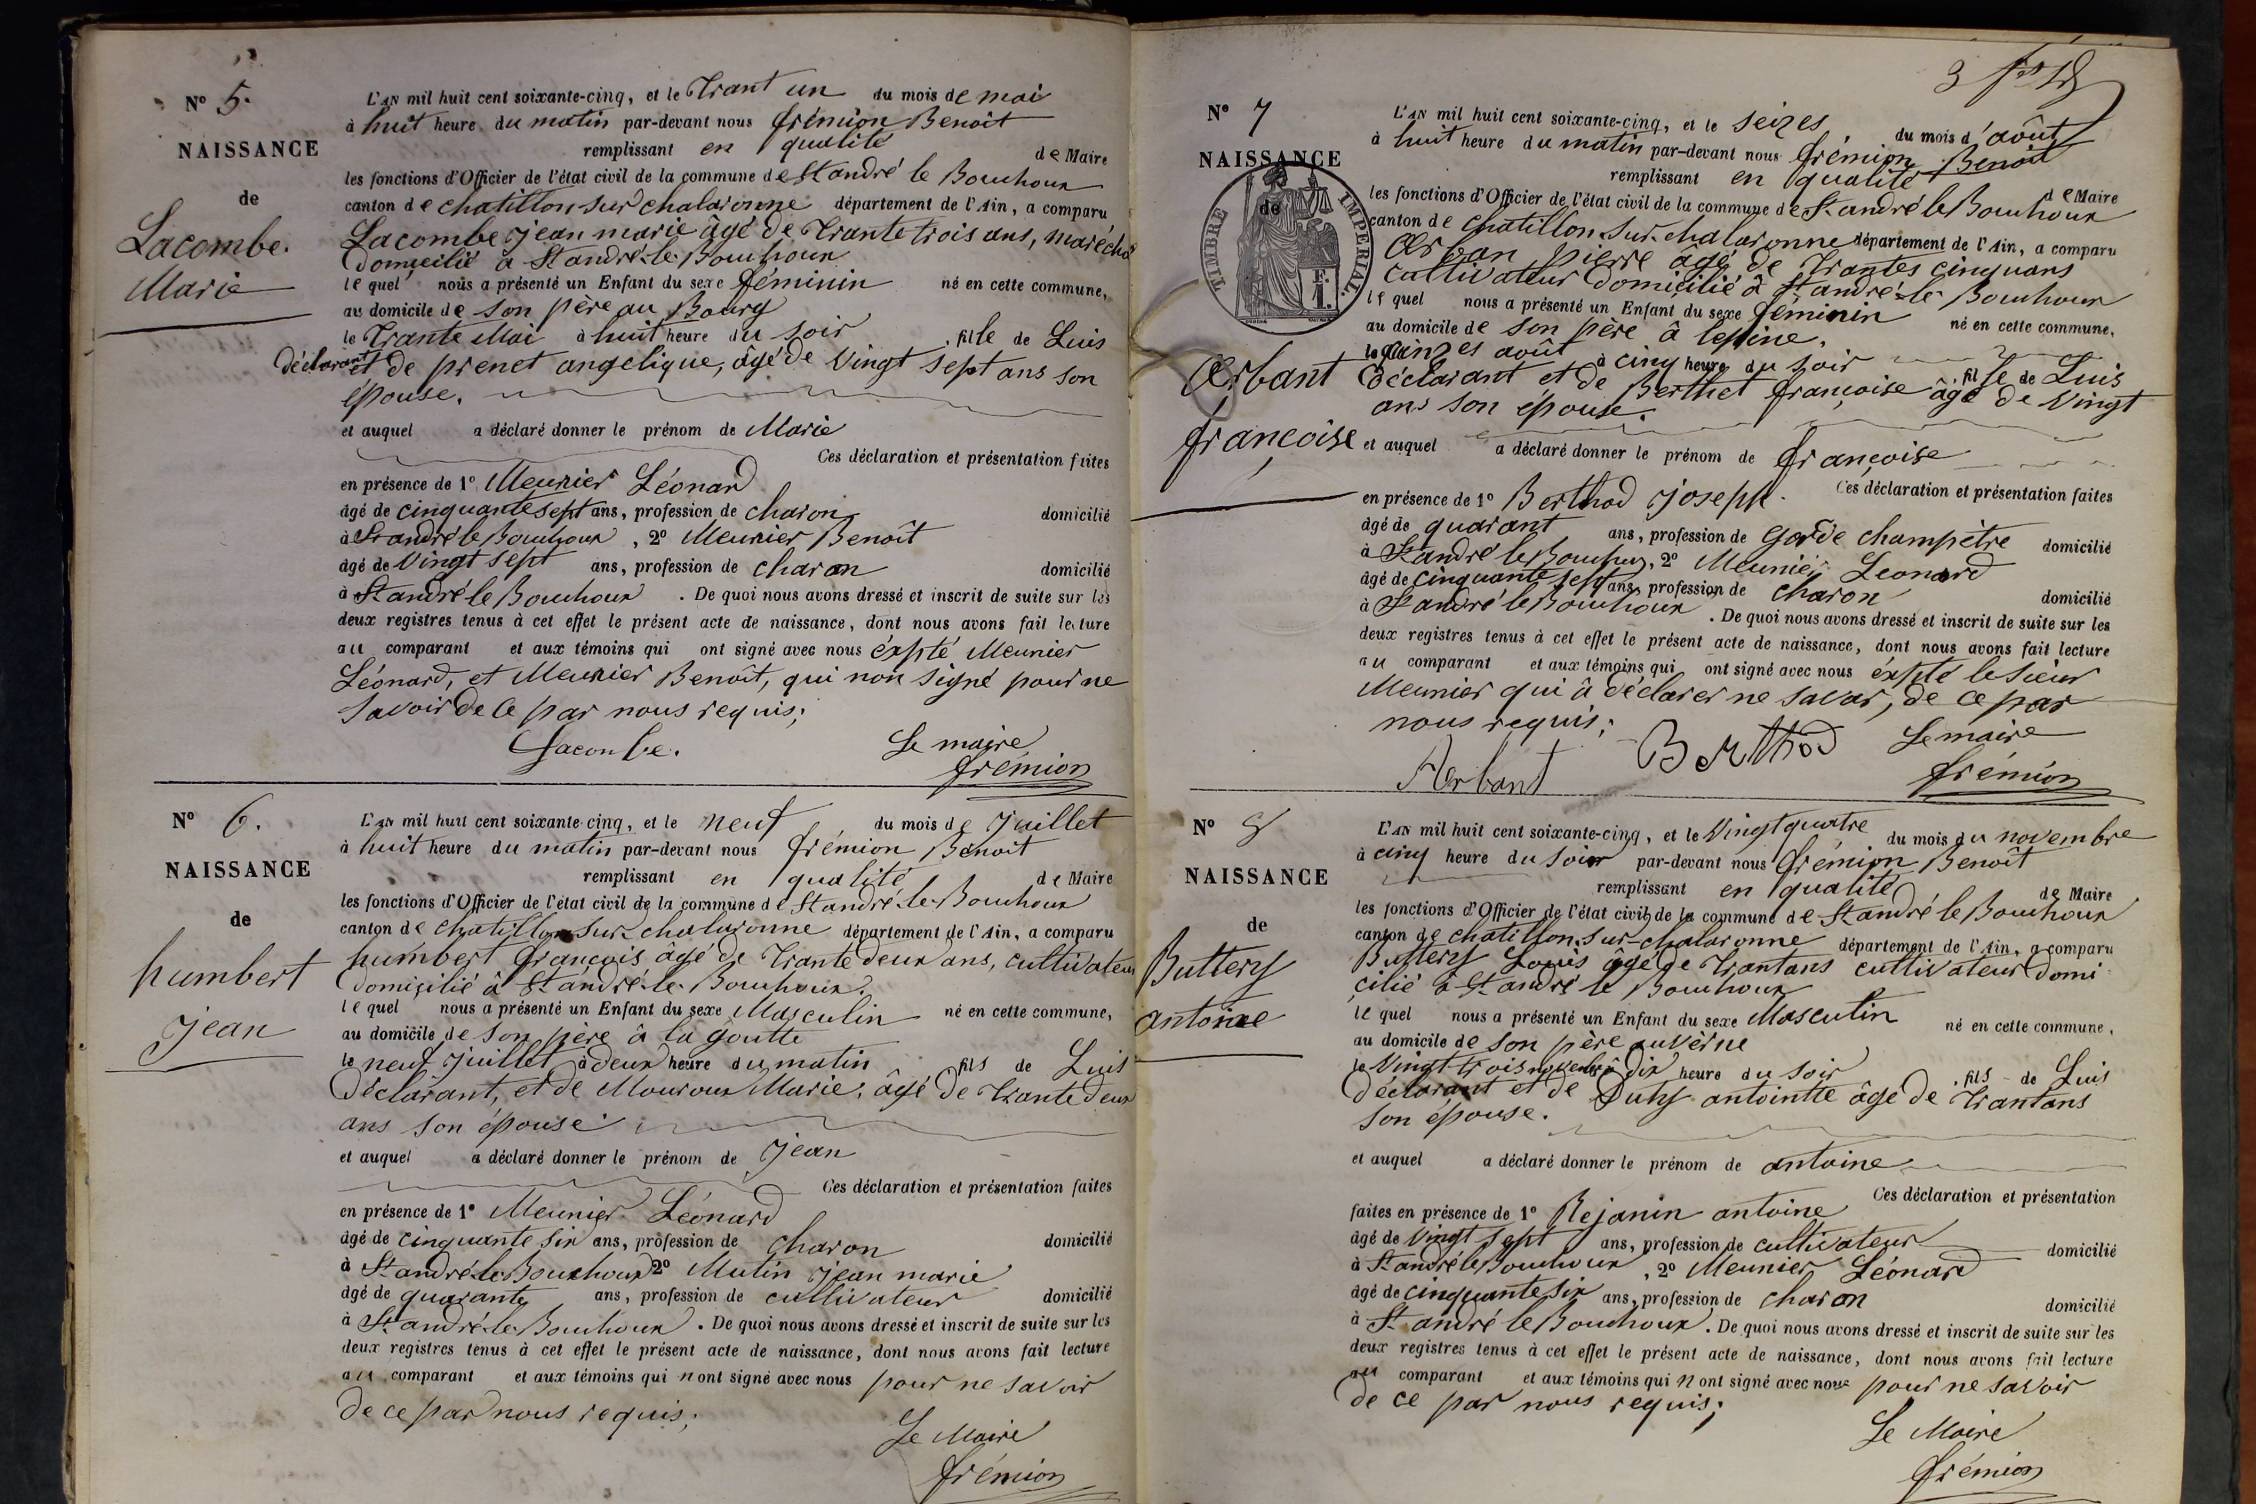 N° 5.
NAISSANCE
de
Lacombe.
Marie
L'AN mil huit cent soixante-cinq, et le Trant un du mois de mai
à huit heure du matin par-devant nous frémion Benoît
remplissant en qualité de Maire
les fonctions d'Officier de l'état civil de la commune de St andré le Bouchoux
canton de chatillon sur chalaronne département de l'Ain, a comparu
Lacombe jean marie âgé de Trante trois ans, maréchal
domicilié à St andré-le-Bouchoux
le quel nous a présenté un Enfant du sexe féminin né en cette commune,
au domicile de son père au Bourg
le Trante Mai à huit heure du soir fille de Luis
déclarant et de prenet angelique, âgé de Vingt sept ans son
épouse.
et auquel a déclaré donner le prénom de Marie
Ces déclaration et présentation faites
en présence de 1° Meunier Léonard
âgé de cinquante sept ans, profession de charon domicilié
à St andré le Bouchoux, 2° Meunier Benoît
âgé de Vingt sept ans, profession de charon domicilié
à St andré le Bouchoux. De quoi nous avons dressé et inscrit de suite sur les
deux registres tenus à cet effet le présent acte de naissance, dont nous avons fait lecture
au comparant et aux témoins qui ont signé avec nous éxpté Meunier
Léonard, et Meunier Benoît, qui non signé pour ne
savoir de ce par nous requis;
Lacombe. Le maire
frémion
N° 6.
NAISSANCE
de
humbert
jean
L'AN mil huit cent soixante-cinq, et le neuf du mois de Juillet
à huit heure du matin par-devant nous frémion Benoit
remplissant en qualité de Maire
les fonctions d'Officier de l'état civil de la commune de St andré-le-Bouchoux
canton de chatillon sur chalaronne département de l'Ain, a comparu
humbert françois âgé de Trante deux ans, cultivateur
domicilié à St andré-le-Bouchoux.
le quel nous a présenté un Enfant du sexe Masculin né en cette commune,
au domicile de son père à la goutte
le neuf juillet à deux heure du matin fils de Luis
déclarant, et de Mouroux Marie, âgé de Trante deux
ans son épouse
et auquel a déclaré donner le prénom de jean
Ces déclaration et présentation faites
en présence de 1° Meunier Léonard
âgé de cinquante six ans, profession de charon domicilié
à St andré-le-Bouchoux 2° Mutin jean marie
âgé de quarante ans, profession de cultivateur domicilié
à St andré-le-Bouchoux. De quoi nous avons dressé et inscrit de suite sur les
deux registres tenus à cet effet le présent acte de naissance, dont nous avons fait lecture
au comparant et aux témoins qui n ont signé avec nous pour ne savoir
de ce par nous requis;
Le Maire
frémion
N° 7
NAISSANCE
de
TIMBRE IMPERIAL
F.
1.
Œrbant
françoise
L'AN mil huit cent soixante-cinq, et le seizes du mois d'août
à huit heure du matin par-devant nous frémion Benoit
remplissant en qualité de Maire
les fonctions d'Officier de l'état civil de la commune de St andré le Bouchoux
canton de chatillon sur chalaronne département de l'Ain, a comparu
Œrban pierre âgé de Trantes cinquans
cultivateur domicilié à St andré-le-Bouchoux
le quel nous a présenté un Enfant du sexe féminin né en cette commune,
au domicile de son père à lepine.
le quinzes août à cinq heure du soir fille de Luis
déclarant et de Berthet françoise âgé de Vingt
ans son épouse.
et auquel a déclaré donner le prénom de françoise
Ces déclaration et présentation faites
en présence de 1° Berthod joseph.
âgé de quarant ans, profession de garde champêtre domicilié
à St andré le Bouchoux, 2° Meunier Leonard
âgé de cinquante sept ans, profession de charon domicilié
à St andré le Bouchoux. De quoi nous avons dressé et inscrit de suite sur les
deux registres tenus à cet effet le présent acte de naissance, dont nous avons fait lecture
au comparant et aux témoins qui ont signé avec nous éxpté le sieur
Meunier qui à déclarer ne savar, de ce par
nous requis;
Arbant Berthod Le maire
frémion
N° 8
NAISSANCE
de
Buttery
antoine
L'AN mil huit cent soixante-cinq, et le Vingt quatre du mois du novembre
à cinq heure du soir par-devant nous frémion Benoît
remplissant en qualité de Maire
les fonctions d'Officier de l'état civil de la commune de St andré le Bouchoux
canton de chatillon-sur-chalaronne département de l'Ain, a comparu
Buttery Louis âgé de Trantans cultivateur domi
cilié à St andré le Bouchoux
le quel nous a présenté un Enfant du sexe Masculin né en cette commune,
au domicile de son père auverne
le Vingt trois novembre à dix heure du soir fils de Luis
déclarant et de Duty antointte âgé de Trantans
son épouse.
et auquel a déclaré donner le prénom de antoine
Ces déclaration et présentation
faites en présence de 1° Rejanin antoine
âgé de Vingt sept ans, profession de cultivateur domicilié
à St andré le Bouchoux, 2° Meunier Léonard
âgé de cinquante six ans, profession de charon domicilié
à St andré le Bouchoux. De quoi nous avons dressé et inscrit de suite sur les
deux registres tenus à cet effet le présent acte de naissance, dont nous avons fait lecture
au comparant et aux témoins qui n ont signé avec nous pour ne savoir
de ce par nous requis;
Le Maire
frémion